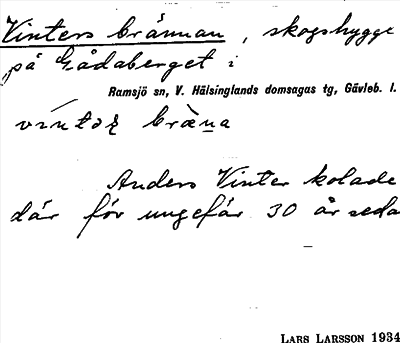 Vinters brännan, skogshygge
på Gådaberget i
Ramsjö sn, V. Hälsinglands domsagas tg, Gävleb. l.
Anders Vinter kolade
där för ungefär 30 år seda
LARS LARSSON 1934